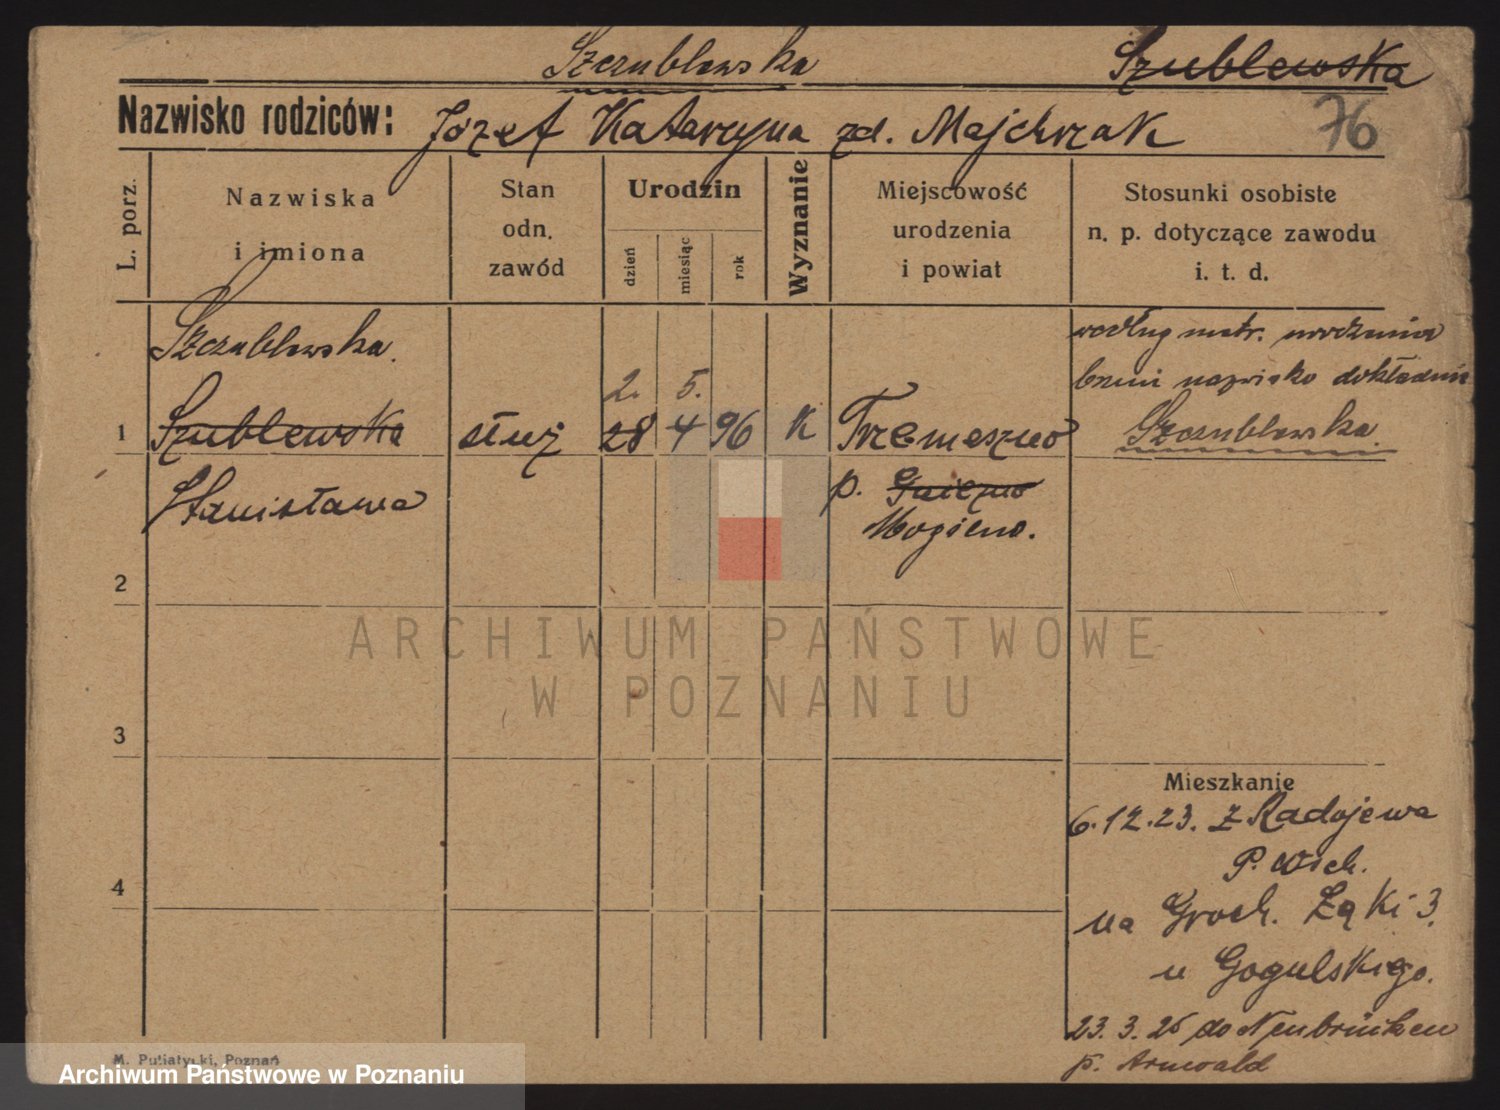 Szczublewska Szublewska
76
Nazwisko rodziców: Józef Katarzyna zd. Majchrzak
L. porz.
Nazwiska
i imiona
Stan
odn.
zawód
Urodzin
dzień
miesiąc
rok
Wyznanie
Miejscowość
urodzenia
i powiat
Stosunki osobiste
n. p. dotyczące zawodu
i. t. d.
Szczublewska.
według metr. urodzenia
brzmi nazwisko dokładnie
2. 5.
1 Szublewska służ 28 4 96 K Trzemeszno Szczublewska.
Stanisława p. Gniezno
Mogilno.
2
ARCHIWUM PAŃSTWOWE
W POZNANIU
3
Mieszkanie
6.12.23. z Radojewa
P. Wsch.
4
na Groch. Łąki 3.
u Gogulskiego.
23. 3. 26 do Neubrücken
p. Arnwald
M. Putiatycki, Poznań
Archiwum Państwowe w Poznaniu